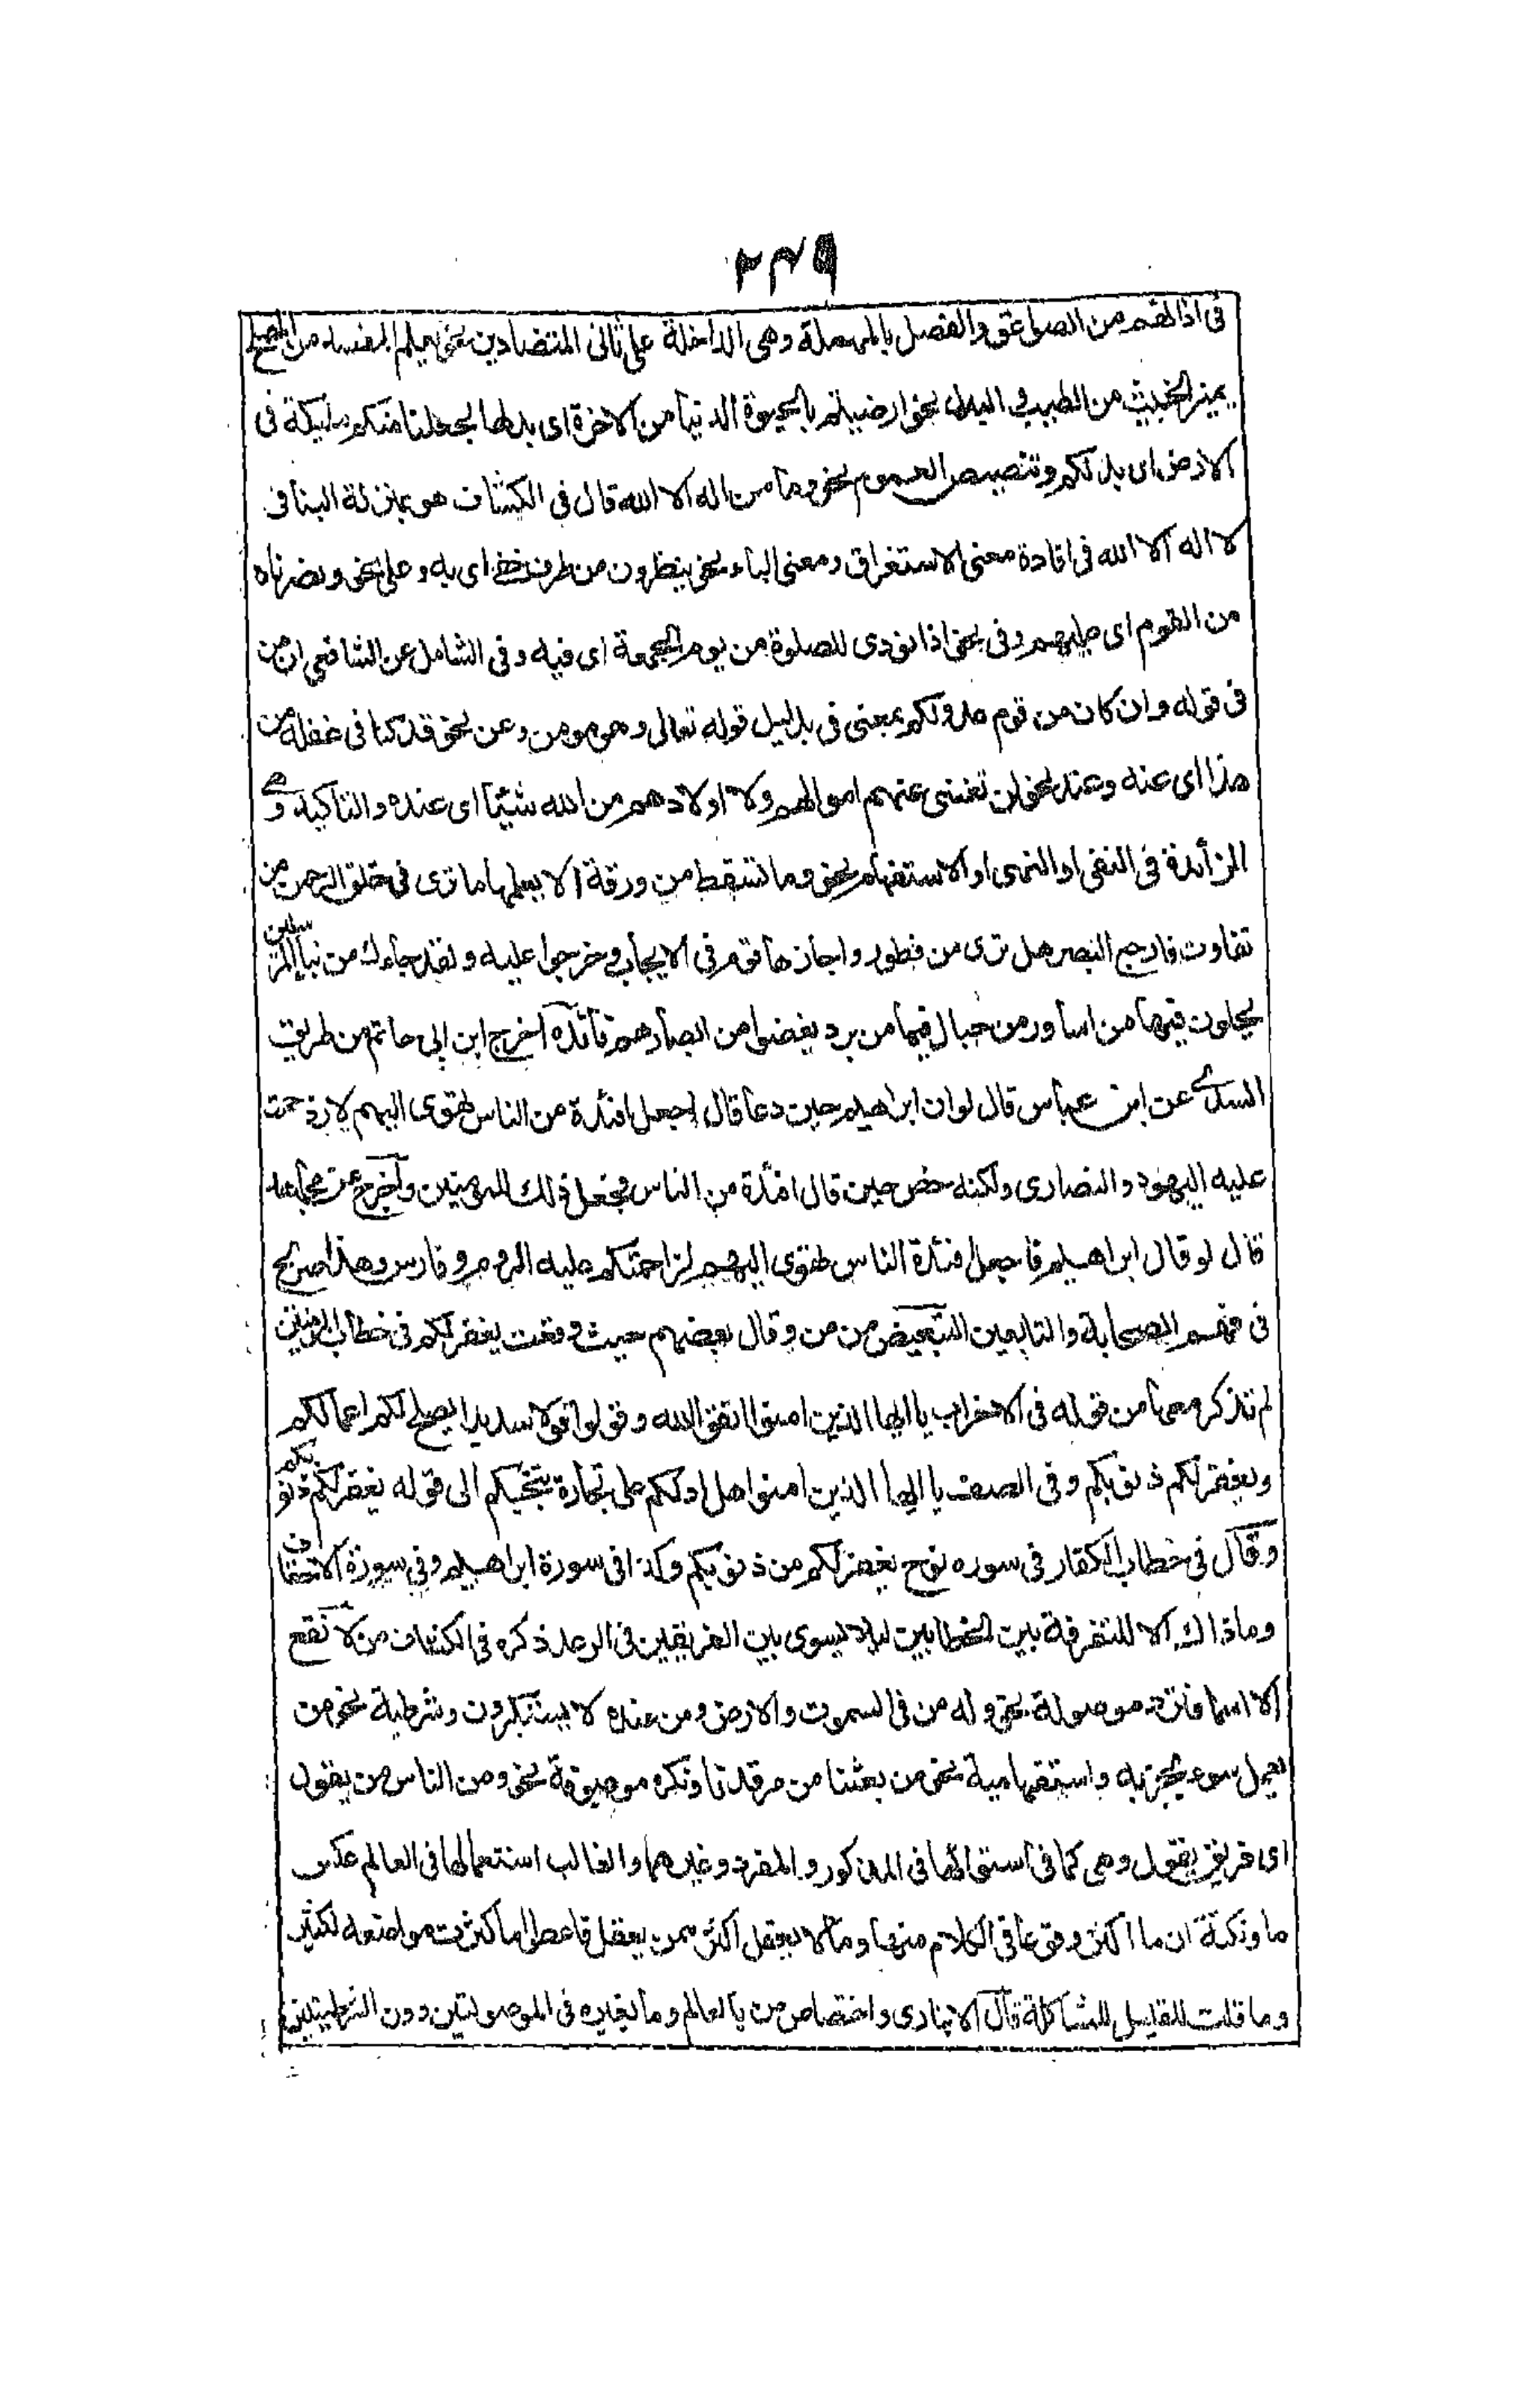 ٢٤٩
فى اذانهم من الصواعق والفصل بالمهملة وهى الداخلة على ثانى المتضادين نحو يعلم المفسد من المصلح
يميز الخبيث من الطيب والبدل نحو ارضيتم بالحيوة الدنيا من الاخرة اى بدلها لجعلنا منكم مليكة فى
الارض اى بدلكم وتنصيص العموم نحو وما من اله الا الله قال فى الكشاف هو بمنزلة البنا فى
لا اله الا الله فى افادة معنى الاستغراق ومعنى الباء نحو ينظرون من طرف خفى اى به وعلى نحو ونصرناه
من القوم اى عليهم وفى نحو اذا نودى للصلوة من يوم الجمعة اى فيه وفى الشامل عن الشافعى ان من
فى قوله وان كان من قوم عدو لكم بمعنى فى بدليل قوله تعالى وهو مومن وعن نحو قد كنا فى غفلة من
هذا اى عنه وعند نحو لن تغنى عنهم اموالهم ولا اولادهم من الله شيئا اى عنده والتاكيد وهى
الزائدة فى النفى او النهى او الاستفهام نحو وما تسقط من ورقة الا يعلمها ما ترى فى خلق الرحمن من
تفاوت فارجع البصر هل ترى من فطور واجازها قوم فى الايجاب وخرجوا عليه ولقد جاءك من نبأ المرسلين
يحلون فيها من اساور من جبال فيها من برد يغضوا من ابصارهم فائدة اخرج ابن ابى حاتم من طريق
السدى عن ابن عباس قال لو ان ابراهيم حين دعا قال اجعل افئدة الناس تهوى اليهم لازدحمت
عليه اليهود والنصارى ولكنه خص حين قال افئدة من الناس فجعل ذلك للمومنين واخرج عن مجاهد
قال لو قال ابراهيم فاجعل افئدة الناس تهوى اليهم لزاحمتكم عليه الروم وفارس وهذا صريح
فى فهم الصحابة والتابعين التبعيض من من وقال بعضهم حيث وقعت يغفر لكم فى خطاب المومنين
لم تذكر معها من قوله فى الاحزاب يا ايها الذين امنوا اتقوا الله وقولوا قولا سديدا يصلح لكم اعمالكم
ويغفر لكم ذنوبكم وفى الصف يا ايها الذين امنوا هل ادلكم على تجارة تنجيكم الى قوله يغفر لكم ذنوبكم
وقال فى خطاب الكفار فى سوره نوح يغفر لكم من ذنوبكم وكذا فى سورة ابراهيم وفى سورة الاحقاف
وما ذاك الا للتفرقة بين الخطابين ليلا يسوى بين الفريقين فى الوعد ذكره فى الكشاف من لا تقع
الا اسما فترد موصولة نحو وله من فى السموت والارض ومن عنده لا يستكبرون وشرطية نحو من
يعمل سوء يجز به واستفهامية نحو من بعثنا من مرقدنا ونكره موصوفة نحو ومن الناس من يقول
اى فريق يقول وهى كما فى استوائها فى المذكور والمفرد وغيرهما والغالب استعمالها فى العالم عكس
ما ونكتة ان ما اكثر وقوعا فى الكلام منها وما لا يعقل اكثر ممن يعقل فاعطوا ما كثرت مواضعه لكثير
وما قلت للقليل للمشاكلة قال الانبارى واختصاص من بالعالم وما بغيره فى الموصولتين دون الشرطيتين